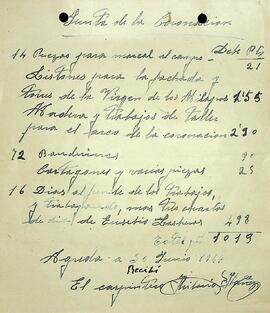 Junta de la Coronacion
Debe Pts
14 Piezas para marcar el campo - 21
Listones para la fachada y
torre de la Virgen de los Milagros 255
Madera y trabajos de taller
para el arco de la coronacion 230
72 Banderinas 90
Cartagones y varias piezas 25
16 Dias al frente de los trabajos,
y trabajando, mas tres cuartos
de dia de Eusebio 498
Total 1019
Agreda a 30 Junio
Recibí
El carpintero